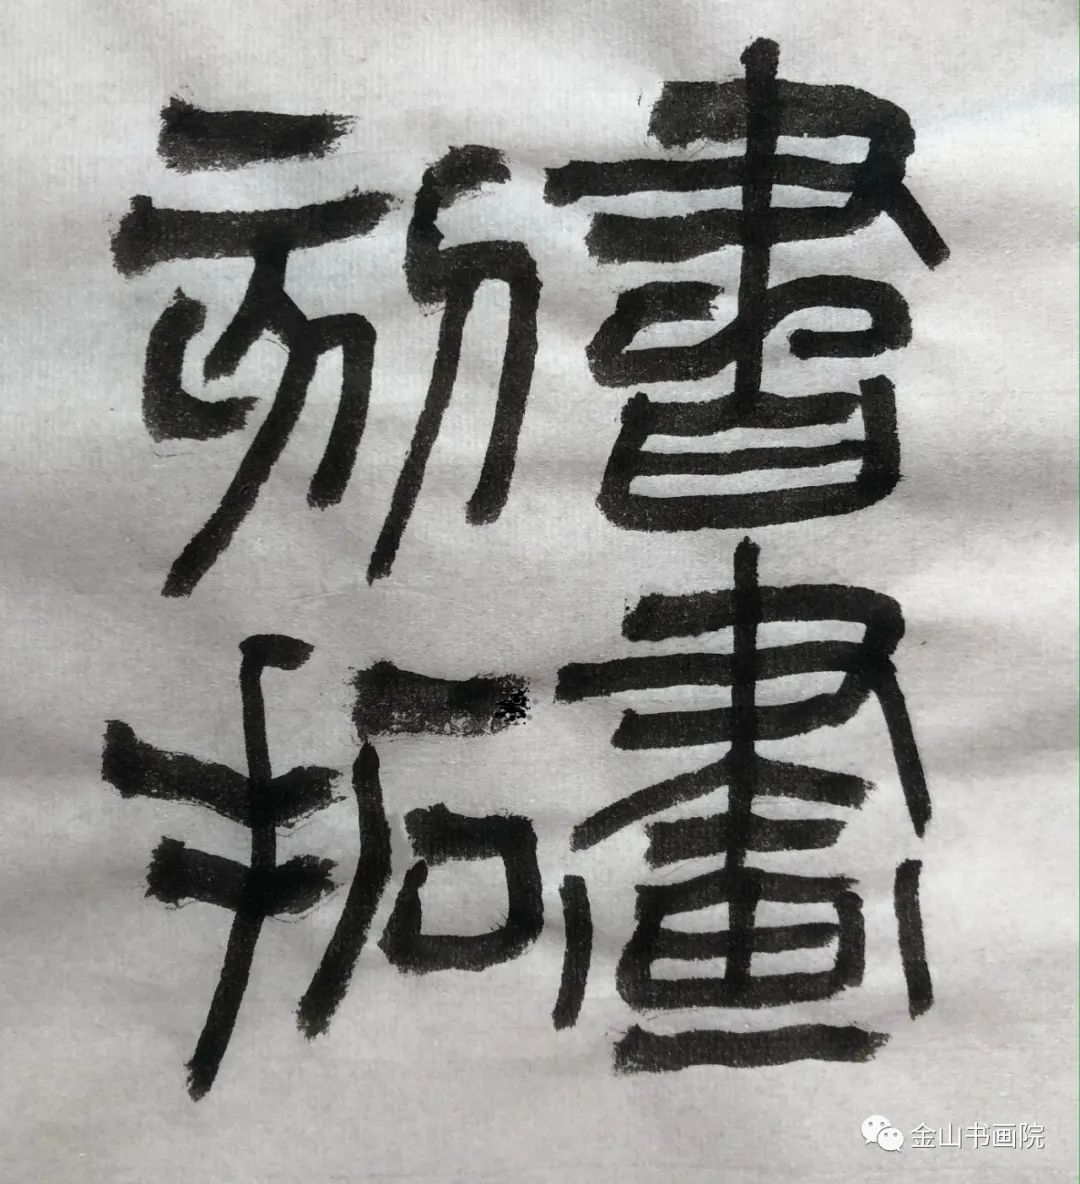 書畫
刻拓
金山书画院